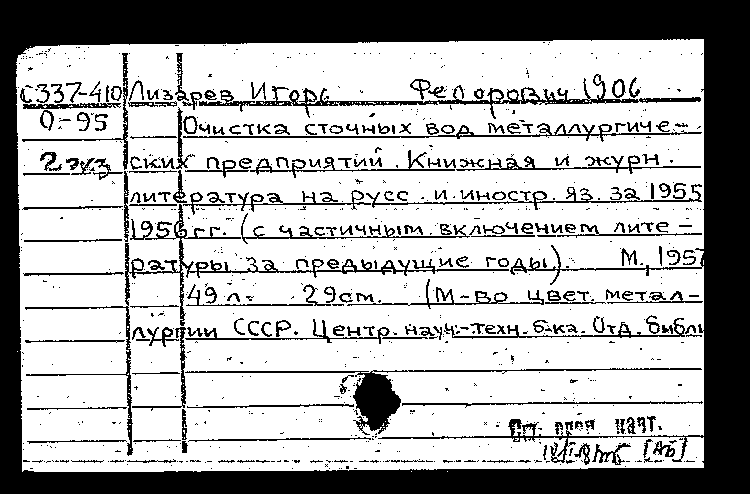 С337-410 Лизарев, Игорь Федорович 1906
О-95 Очистка сточных вод металлургиче-
2 экз ских предприятий. Книжная и журн.
литература на русс. и иностр. яз. за 1955
1956 гг. (с частичным включением лите-
ратуры за предыдущие годы). М., 1957
49 л. 29 см. (М-во цвет. метал-
лургии СССР. Центр. науч.-техн. б-ка. Отд. библи
[АБ]